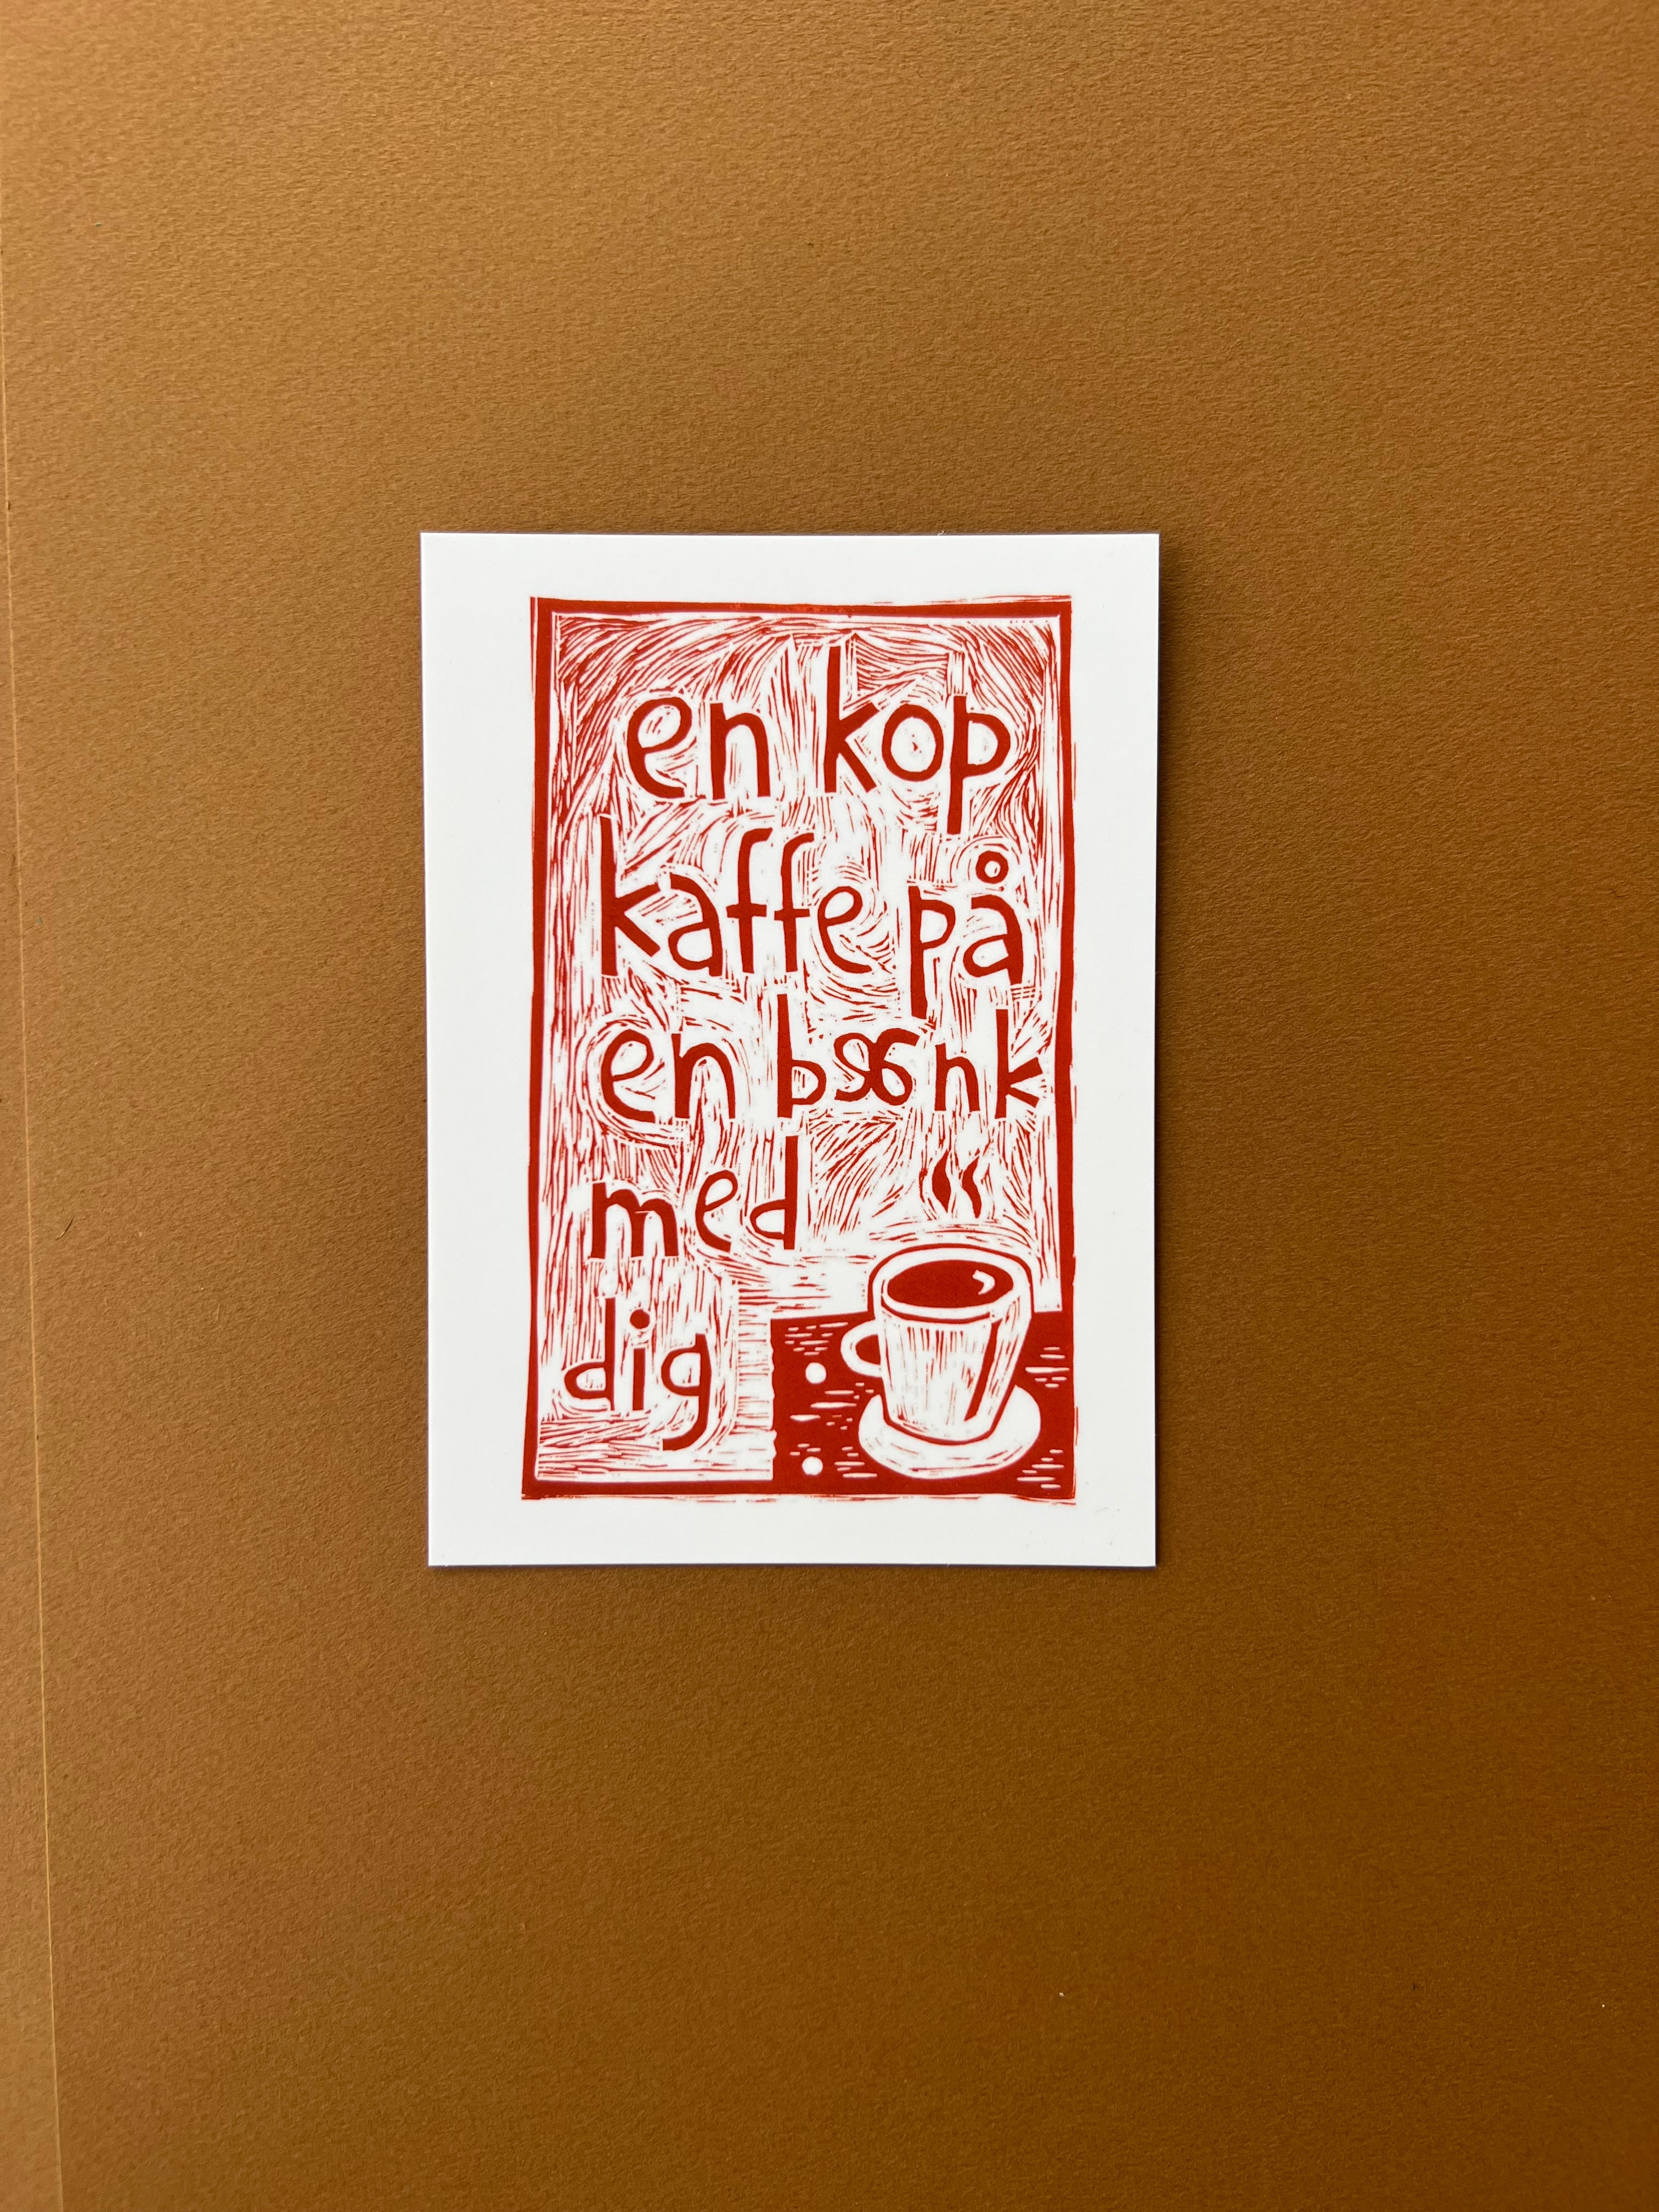 en kop
kaffe på
en bænk
med
dig